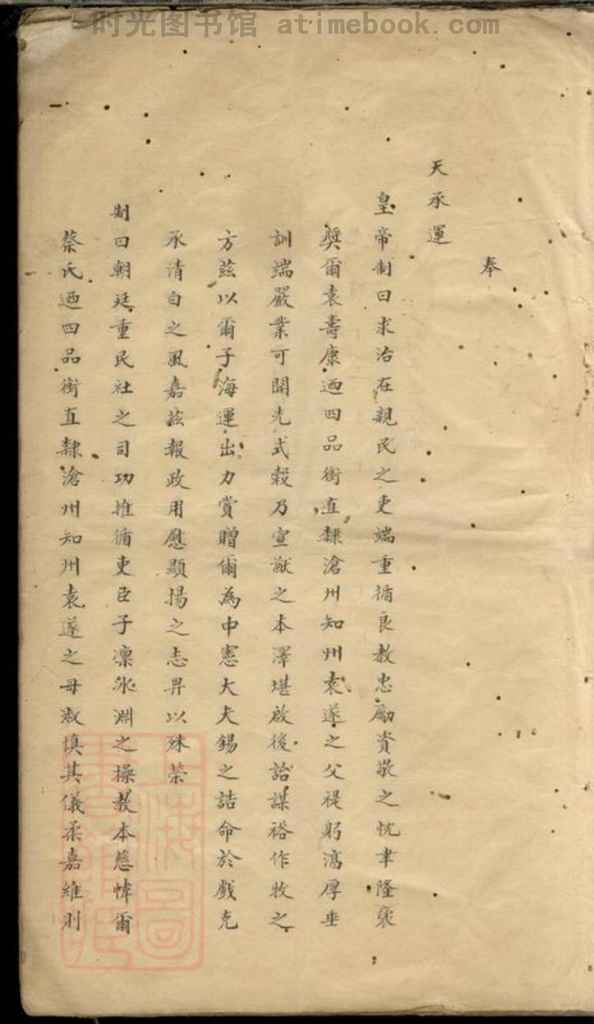 时光图书馆 atimebook.com
奉
天承運
皇帝制曰求治在親民之吏端重循良教忠勵資敬之忱聿隆褒
奬爾袁壽康迺四品銜直隸滄州知州袁遂之父禔躬淳厚垂
訓端嚴業可開先式穀乃宣猷之本澤堪啟後詒謀裕作牧之
方茲以爾子海運出力賞贈爾為中憲大夫錫之誥命於戲克
承清白之風嘉茲報政用慰顯揚之志畀以殊榮
制曰朝廷重民社之司功推循吏臣子凜氷淵之操教本慈幃爾
蔡氏迺四品銜直隸滄州知州袁遂之母淑慎其儀柔嘉維則